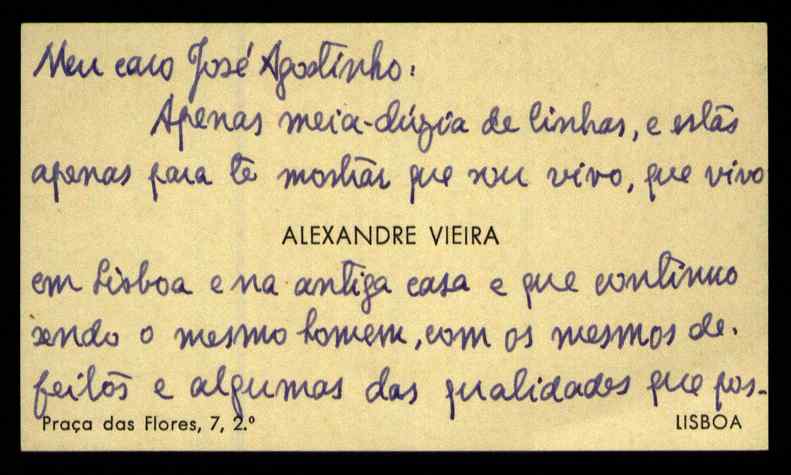 Meu caro José Agostinho:
Apenas meia-dúzia de linhas, e estas
apenas para te mostrar que sou vivo, que vivo
ALEXANDRE VIEIRA
em Lisboa e na antiga casa e que continuo
sendo o mesmo homem, com os mesmos de-
feitos e algumas das qualidades que pos-
Praça das Flores, 7, 2.º LISBOA